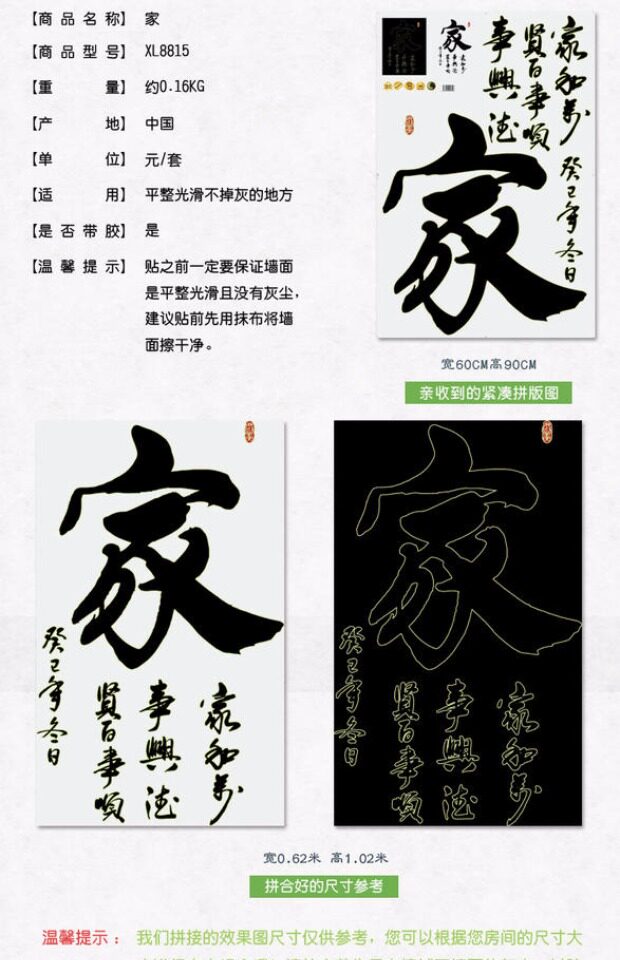 【商品名称】 家
【商品型号】 XL8815
【重量】 约0.16KG
【产地】 中国
【单位】 元/套
【适用】 平整光滑不掉灰的地方
【是否带胶】 是
【温馨提示】 贴之前一定要保证墙面
是平整光滑且没有灰尘，
建议贴前先用抹布将墙
面擦干净。
家和万
事興德
賢百事順
癸巳年冬日
家
宽60CM高90CM
亲收到的紧凑拼版图
家
家和万
事興德
賢百事順
癸巳年冬日
家
家和万
事興德
賢百事順
癸巳年冬日
宽0.62米 高1.02米
拼合好的尺寸参考
温馨提示： 我们拼接的效果图尺寸仅供参考，您可以根据您房间的尺寸大